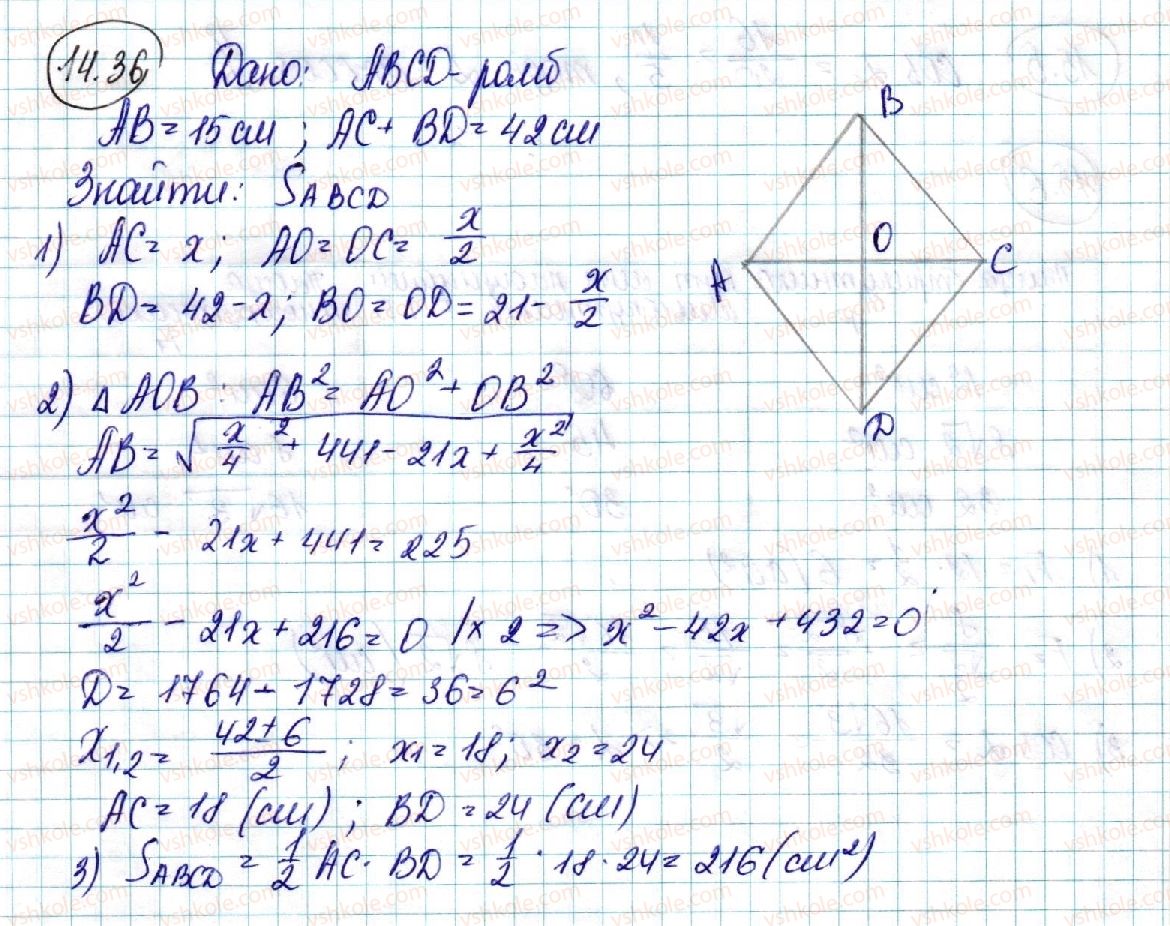 14.36 Дано: ABCD - ромб
AB = 15 см ; AC + BD = 42 см
Знайти: S ABCD
1) AC = x ; AO = OC = x/2
BD = 42 - x ; BO = OD = 21 - x/2
2) △ AOB : AB² = AO² + OB²
AB = √(x/4 ² + 441 - 21x + x²/4)
x²/2 - 21x + 441 = 225
x²/2 - 21x + 216 = 0 /× 2 => x² - 42x + 432 = 0
D = 1764 - 1728 = 36 = 6²
x1,2 = (42 ± 6)/2 ; x1 = 18 ; x2 = 24
AC = 18 (см) ; BD = 24 (см)
3) S ABCD = 1/2 AC · BD = 1/2 · 18 · 24 = 216 (см²)
B
O
A
C
D
vshkole.com